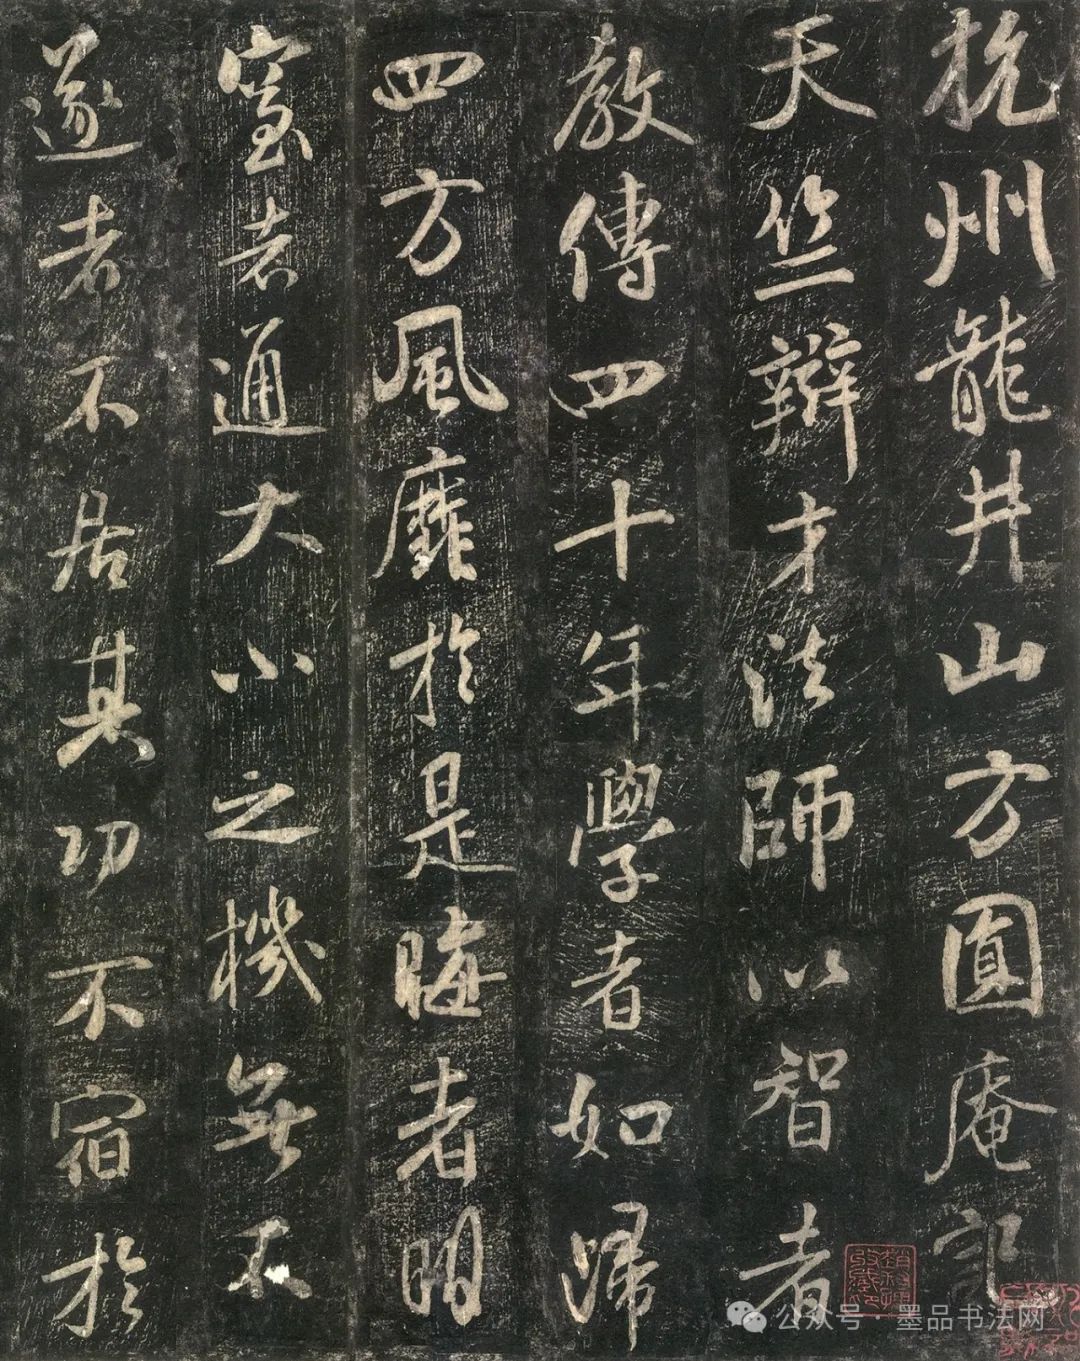 杭州龍井山方圓庵記
天竺辯才法師以智者
教傳四十年學者如歸
四方風靡於是晦者明
窒者通大小之機無不
遂者不居其功不宿於
公众号·墨品书法网